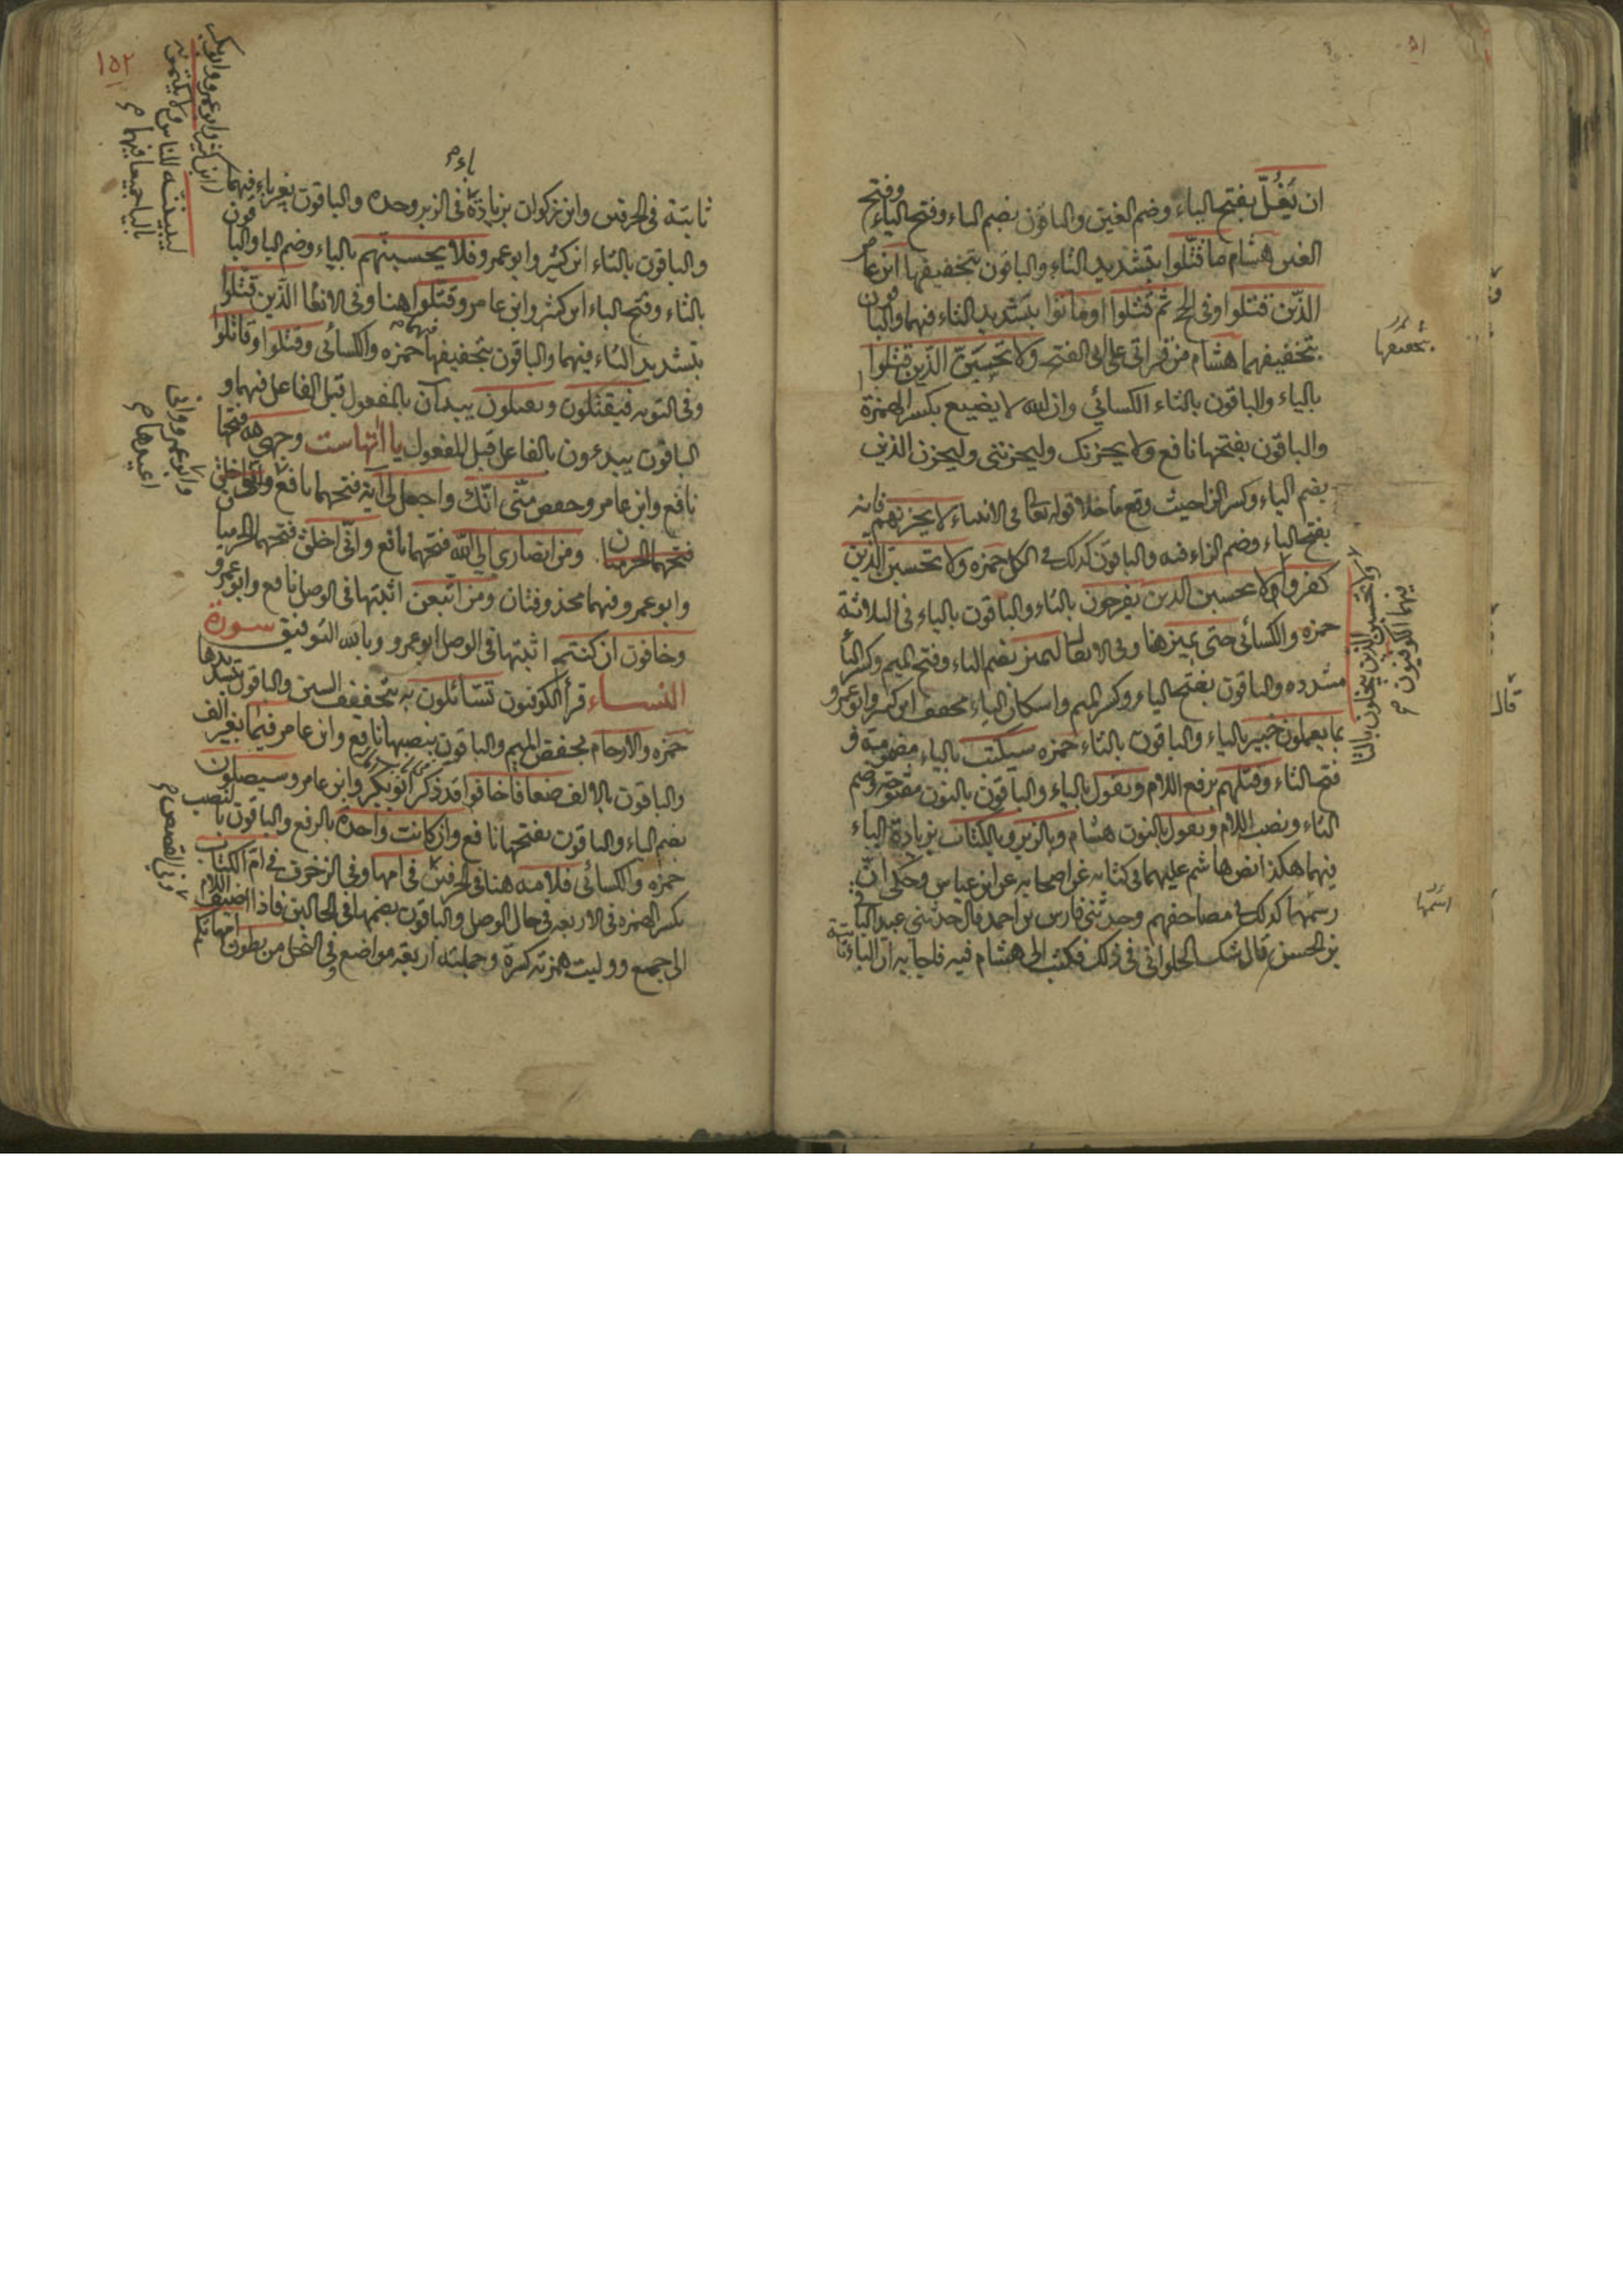 ان يَغُلّ بفتح الياء وضم الغين والباقون بضم الياء وفتح الياء وفتح
الغين هشام ما قتّلوا بتشديد التاء والباقون بتخفيفها ابن عامر
الذين قتلوا وفى الحج ثم قُتلوا او ماتوا بتشديد التاء فيهما والباقون
بتخفيفهما هشام من قراتى على ابى الفتح ولا تحسبنّ الذين قتلوا
بالياء والباقون بالتاء الكسائي وان الله لا يضيع بكسر الهمزة
والباقون بفتحها نافع ولا يحزنك وليحزننى وليحزن الذين
بضم الياء وكسر الزا حيث وقع ما خلا قوله تعالى فى الانبياء لا يحزنهم فانه
بفتح الياء وضم الزاء فيه والباقون كذلك فى الكل حمزه ولا تحسبن الذين
كفروا ولا تحسبن الذين يبخلون بالتاء
فيهما الكوفيون
لا تحسبن الذين يفرحون بالتاء والباقون بالياء فى الثلاثة
حمزه والكسائى حتى يميز هنا وفى الانفال ليميز بضم الياء وفتح الميم وكسر اليا
مشدده والباقون بفتح الياء وكسر الميم واسكان الياء مخفف ابن كثير وابو عمرو
بما يعملون خبير بالياء والباقون بالتاء حمزه سيكتب بالياء مضمومة و
فتح التاء وقتلهم برفع اللام ويقول بالياء والباقون بالنون مفتوحة وضم
التاء ونصب اللام ونقول بالنون هشام وبالزبر وبالكتاب بزيادة الباء
فيهما هكذا نص هاشم عليهما فى كتابه عن اصحابه عن ابن عباس وحكى انّ
رسمهما كذلك فى مصاحفهم وحدثنى فارس بن احمد قال حدثنى عبد الباقى
بن الحسن قال شك الحلوانى فى ذلك فكتب الى هشام فيه فاجابه ان الباء ثابتة
١٥٢
ثابتة فى الحرفين وابن ذكوان بزيادة باء فى الزبر وحده والباقون بغير باء فيهما
ابن كثير وابو عمرو وابو بكر
ليبيننه للناس ولا يكتمونه
بالياء جميعا فيهما
والباقون بالتاء ابن كثير وابو عمرو فلا يحسبنّهم بالياء وضم الباء والباقون
بالتاء وفتح الباء ابن كثير وابن عامر وقتلوا هنا وفى الانعام الذين قتّلوا
بتشديد التاء فيهما والباقون بتخفيفها فيهما حمزه والكسائى وقتلوا وقاتلوا
وفى التوبه فيقتلون ويقتلون يبدان بالمفعول قبل الفاعل فيهما و
الباقون يبدءون بالفاعل قبل المفعول يا اتها ست وجهى لله فتحها
نافع وابن عامر وحفص منّى انّك واجعل لى آية فتحهما نافع وابو عمرو وانى
اعيذها
فتحها الحرميان ومن انصارى الى الله فتحهما نافع وانّى اخلق فتحها الحرميا
وابو عمرو فيهما محذوفتان ومن اتّبعن اثبتها فى الوصل نافع وابو عمرو
وخافون ان كنتم اثبتها فى الوصل ابو عمرو وبالله التوفيق سورة
النساء قرأ الكوفيون تسّائلون به بتخفيف السين والباقون بتشديدها
حمزه والارحام بخفض الميم والباقون بنصبها نافع وابن عامر قيما بغير الف
والباقون بالالف ضعافا خافوا قد ذكر ابو بكر وابن عامر وسيصلون
بضم الياء والباقون بفتحها نافع وان كانت واحدة بالرفع والباقون بالنصب
حمزه والكسائى فلامه هنا فى الحرفين فى امها وفى الزخرف فى امّ الكتاب
وفى القصص
بكسر الهمزه فى الاربعه فى حال الوصل والباقون بضمها فى الحالين فاذا اضيف اللام
الى جمع ووليت همزته كسرة وجملته اربعة مواضع فى النحل من بطون امهاتكم